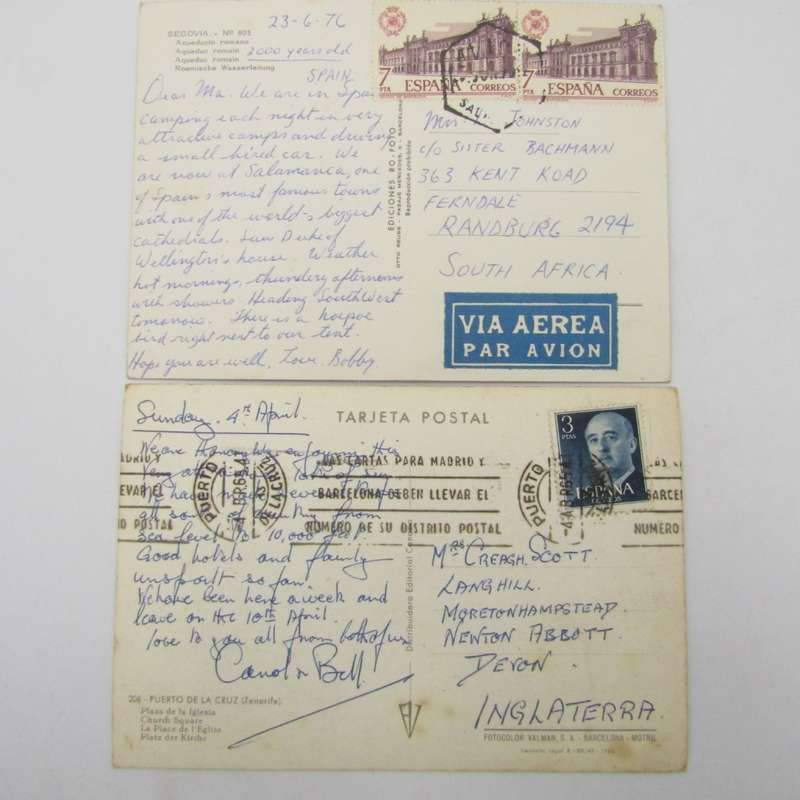 23-6-76
SEGOVIA. - Nº 805
Acueducto romano
Aqueduc romain 2000 years old
Aqueduc romain
Roemische Wasserleitung
SPAIN.
Dear Ma. We are in Spain
camping each night in very
attractive camps and driving
a small hired car. We
are now at Salamanca, one
of Spain's most famous towns
with one of the world's biggest
cathedrals. Saw Duke of
Wellington's house. Weather
hot mornings, thundery afternoons
with showers. Heading South West
tomorrow. There is a hoopoe
bird right next to our tent.
Hope you are well, Love, Bobby.
EDICIONES RO-FOTO
Reproducción prohibida
7 PTA ESPAÑA CORREOS
7 PTA ESPAÑA CORREOS
JOHNSTON
c/o SISTER BACHMANN
363 KENT ROAD
FERNDALE
RANDBURG 2194
SOUTH AFRICA.
VIA AEREA
PAR AVION
Sunday, 4th April.
TARJETA POSTAL
3 PTAS
ESPAÑA
PUERTO DE LA CRUZ
-4 ABR 65
LAS CARTAS PARA MADRID Y
BARCELONA DEBEN LLEVAR EL
NUMERO DE SU DISTRITO POSTAL
PUERTO
-4 ABR 65
BARCEL
NUMERO
sea level to 10,000 feet.
Good hotels and family
unspoilt so far.
We have been here a week and
leave on the 10th April.
love to you all from both of us
Carol & Bill
Mrs CREAGH SCOTT.
LANGHILL.
MORETONHAMPSTEAD.
NEWTON ABBOTT.
DEVON.
INGLATERRA.
Distribuidora Editorial
206 - PUERTO DE LA CRUZ (Tenerife)
Plaza de la Iglesia
Church Square
La Place de l'Eglise
Platz der Kirche
FOTOCOLOR VALMAN, S. A. - BARCELONA - MOTRIL